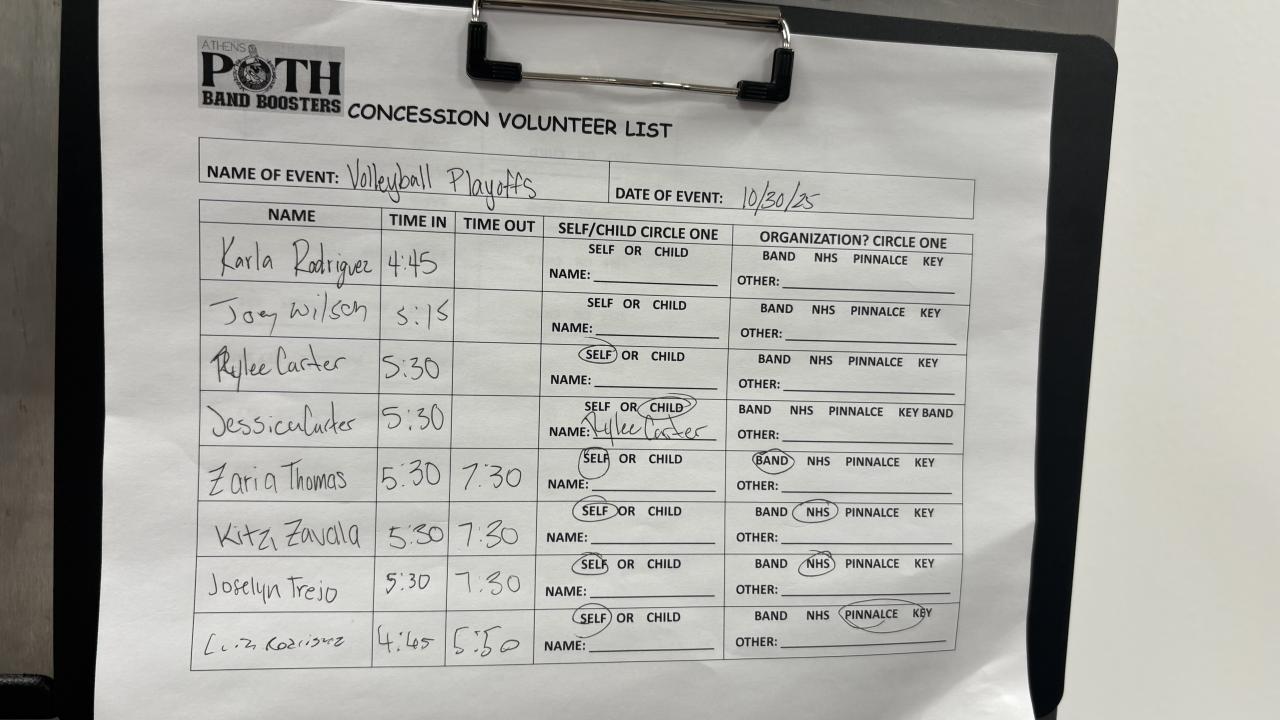 ATHENS
POTH
BAND BOOSTERS
CONCESSION VOLUNTEER LIST
NAME OF EVENT: Volleyball Playoffs DATE OF EVENT: 10/30/25
NAME TIME IN TIME OUT SELF/CHILD CIRCLE ONE ORGANIZATION? CIRCLE ONE
SELF OR CHILD BAND NHS PINNALCE KEY
Karla Rodriguez 4:45 NAME: OTHER:
SELF OR CHILD BAND NHS PINNALCE KEY
Joey Wilson 5:15 NAME: OTHER:
SELF OR CHILD BAND NHS PINNALCE KEY
Rylee Carter 5:30 NAME: OTHER:
SELF OR CHILD BAND NHS PINNALCE KEY BAND
Jessica Carter 5:30 NAME: Rylee Carter OTHER:
SELF OR CHILD BAND NHS PINNALCE KEY
Zaria Thomas 5:30 7:30 NAME: OTHER:
SELF OR CHILD BAND NHS PINNALCE KEY
Kitzi Zavalla 5:30 7:30 NAME: OTHER:
SELF OR CHILD BAND NHS PINNALCE KEY
Joselyn Trejo 5:30 7:30 NAME: OTHER:
SELF OR CHILD BAND NHS PINNALCE KEY
Rodriguez 4:45 5:50 NAME: OTHER: